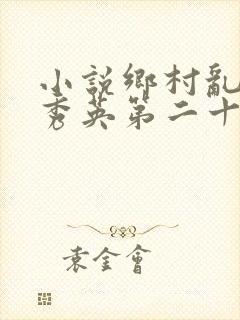 小說鄉村亂
秀英第二十
袁金會